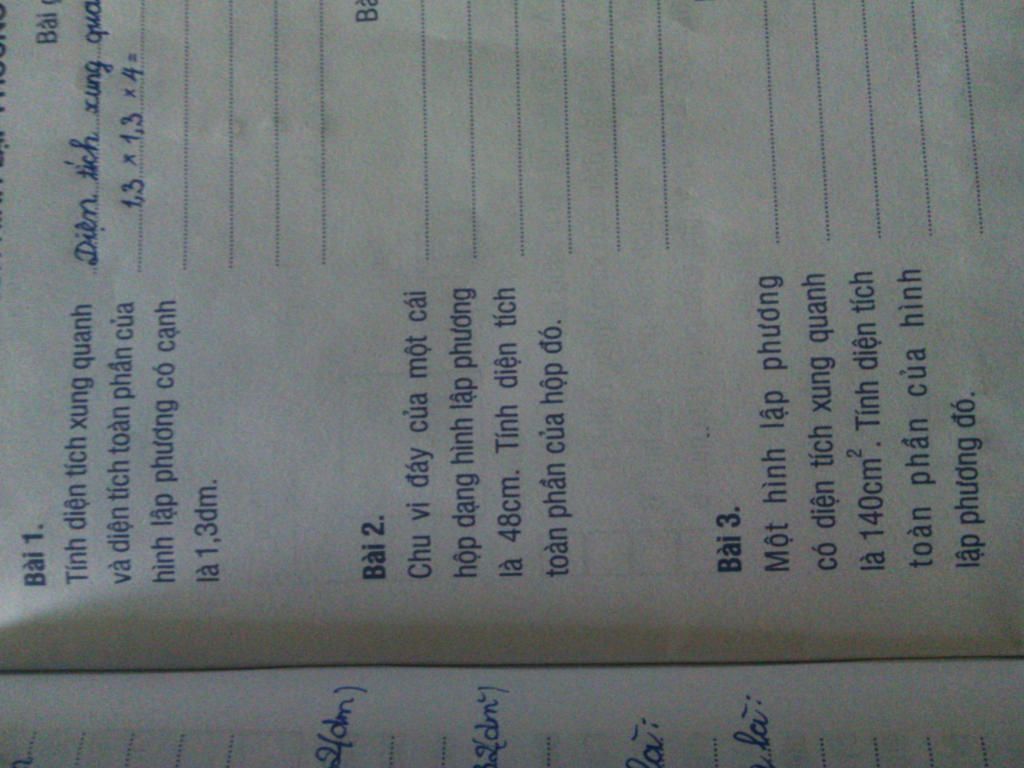 Bài 1.
Tính diện tích xung quanh
và diện tích toàn phần của
hình lập phương có cạnh
là 1,3dm.
Diện tích xung
1,3 × 1,3 × 4 =
Bài 2.
Chu vi đáy của một cái
hộp dạng hình lập phương
là 48cm. Tính diện tích
toàn phần của hộp đó.
Bài 3.
Một hình lập phương
có diện tích xung quanh
là 140cm². Tính diện tích
toàn phần của hình
lập phương đó.